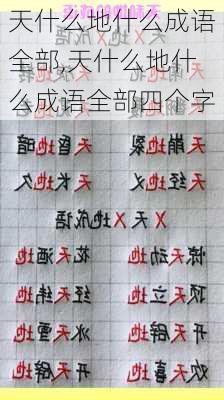 天什么地什么成语
全部,天什么地什
么成语全部四个字
天崩地裂 天昏地暗
天经地义 天长地久
天X地X成语
惊天动地 花天酒地
顶天立地 经天纬地
开天辟地 冰天雪地
欢天喜地 开天辟地